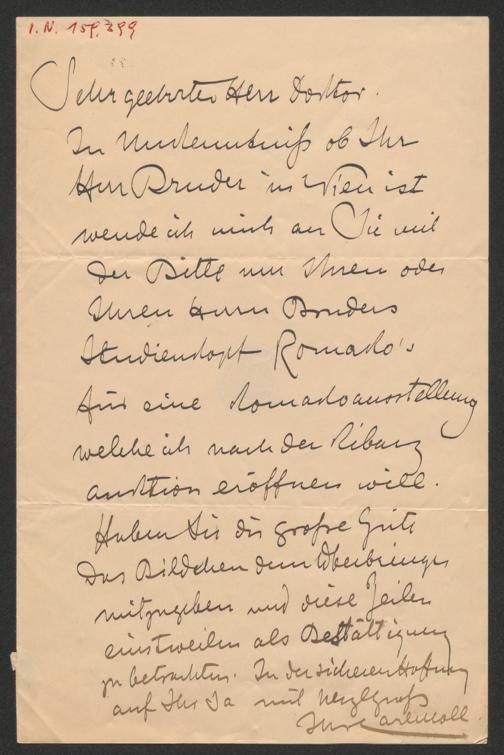 I.N. 159.399
Sehr geehrter Herr Doktor.
In Unkenntniß ob Ihr
Herr Bruder in Wien ist
wende ich mich an Sie mit
der Bitte um Ihren oder
Ihren Herrn Bruders
Studienkopf Romako's
für eine Romakoausstellung
welche ich nach der
auktion eröffnen will.
Haben Sie die große Güte
das Bildchen dem Überbringer
mitzugeben und diese Zeilen
einstweilen als Bestättigung
zu betrachten. In der sicheren Hoffnung
auf Ihr Ja mit
Ihr Carl Moll